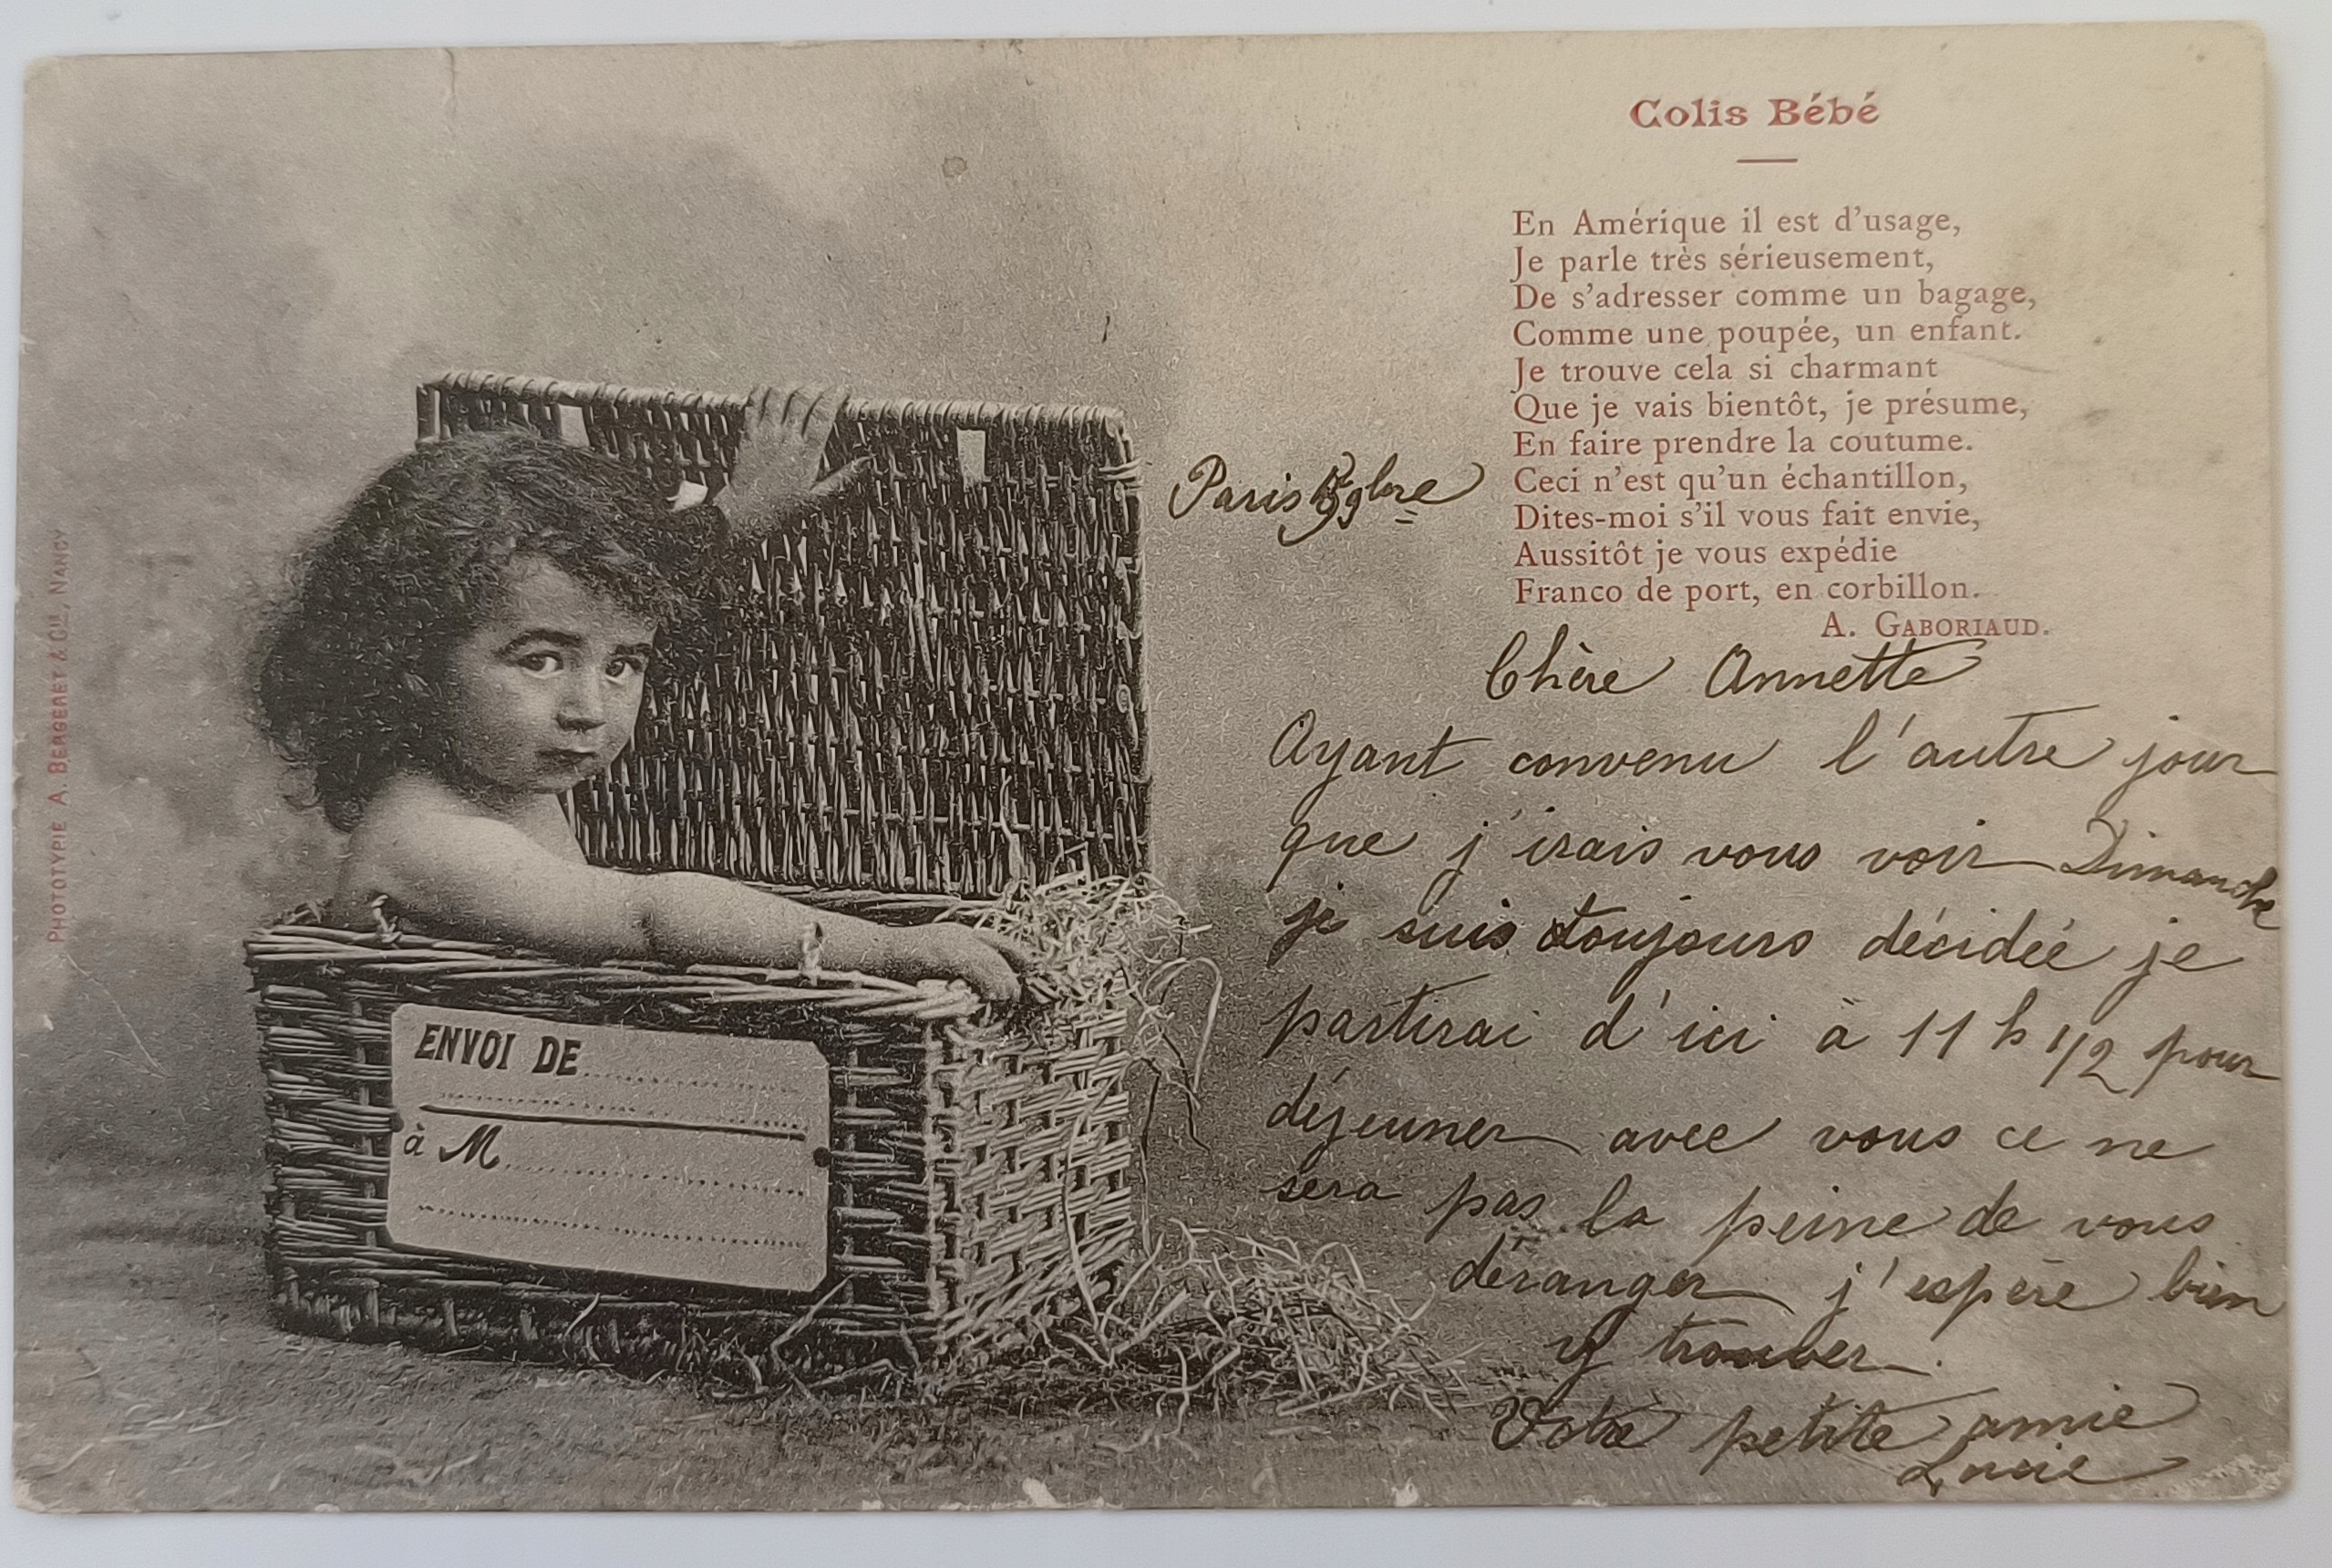 Colis Bébé
En Amérique il est d'usage,
Je parle très sérieusement,
De s'adresser comme un bagage,
Comme une poupée, un enfant.
Je trouve cela si charmant
Que je vais bientôt, je présume,
En faire prendre la coutume.
Ceci n'est qu'un échantillon,
Dites-moi s'il vous fait envie,
Aussitôt je vous expédie
Franco de port, en corbillon.
A. GABORIAUD.
Paris
Chère Annette
Ayant convenu l'autre jour
que j'irais vous voir Dimanche
je suis toujours décidée je
partirai d'ici à 11 h 1/2 pour
déjeuner avec vous ce ne
sera pas la peine de vous
déranger j'espère bien
y trouver.
Votre petite amie
Lucie
ENVOI DE
à M
PHOTOTYPIE A. BERGERET & Cie, NANCY